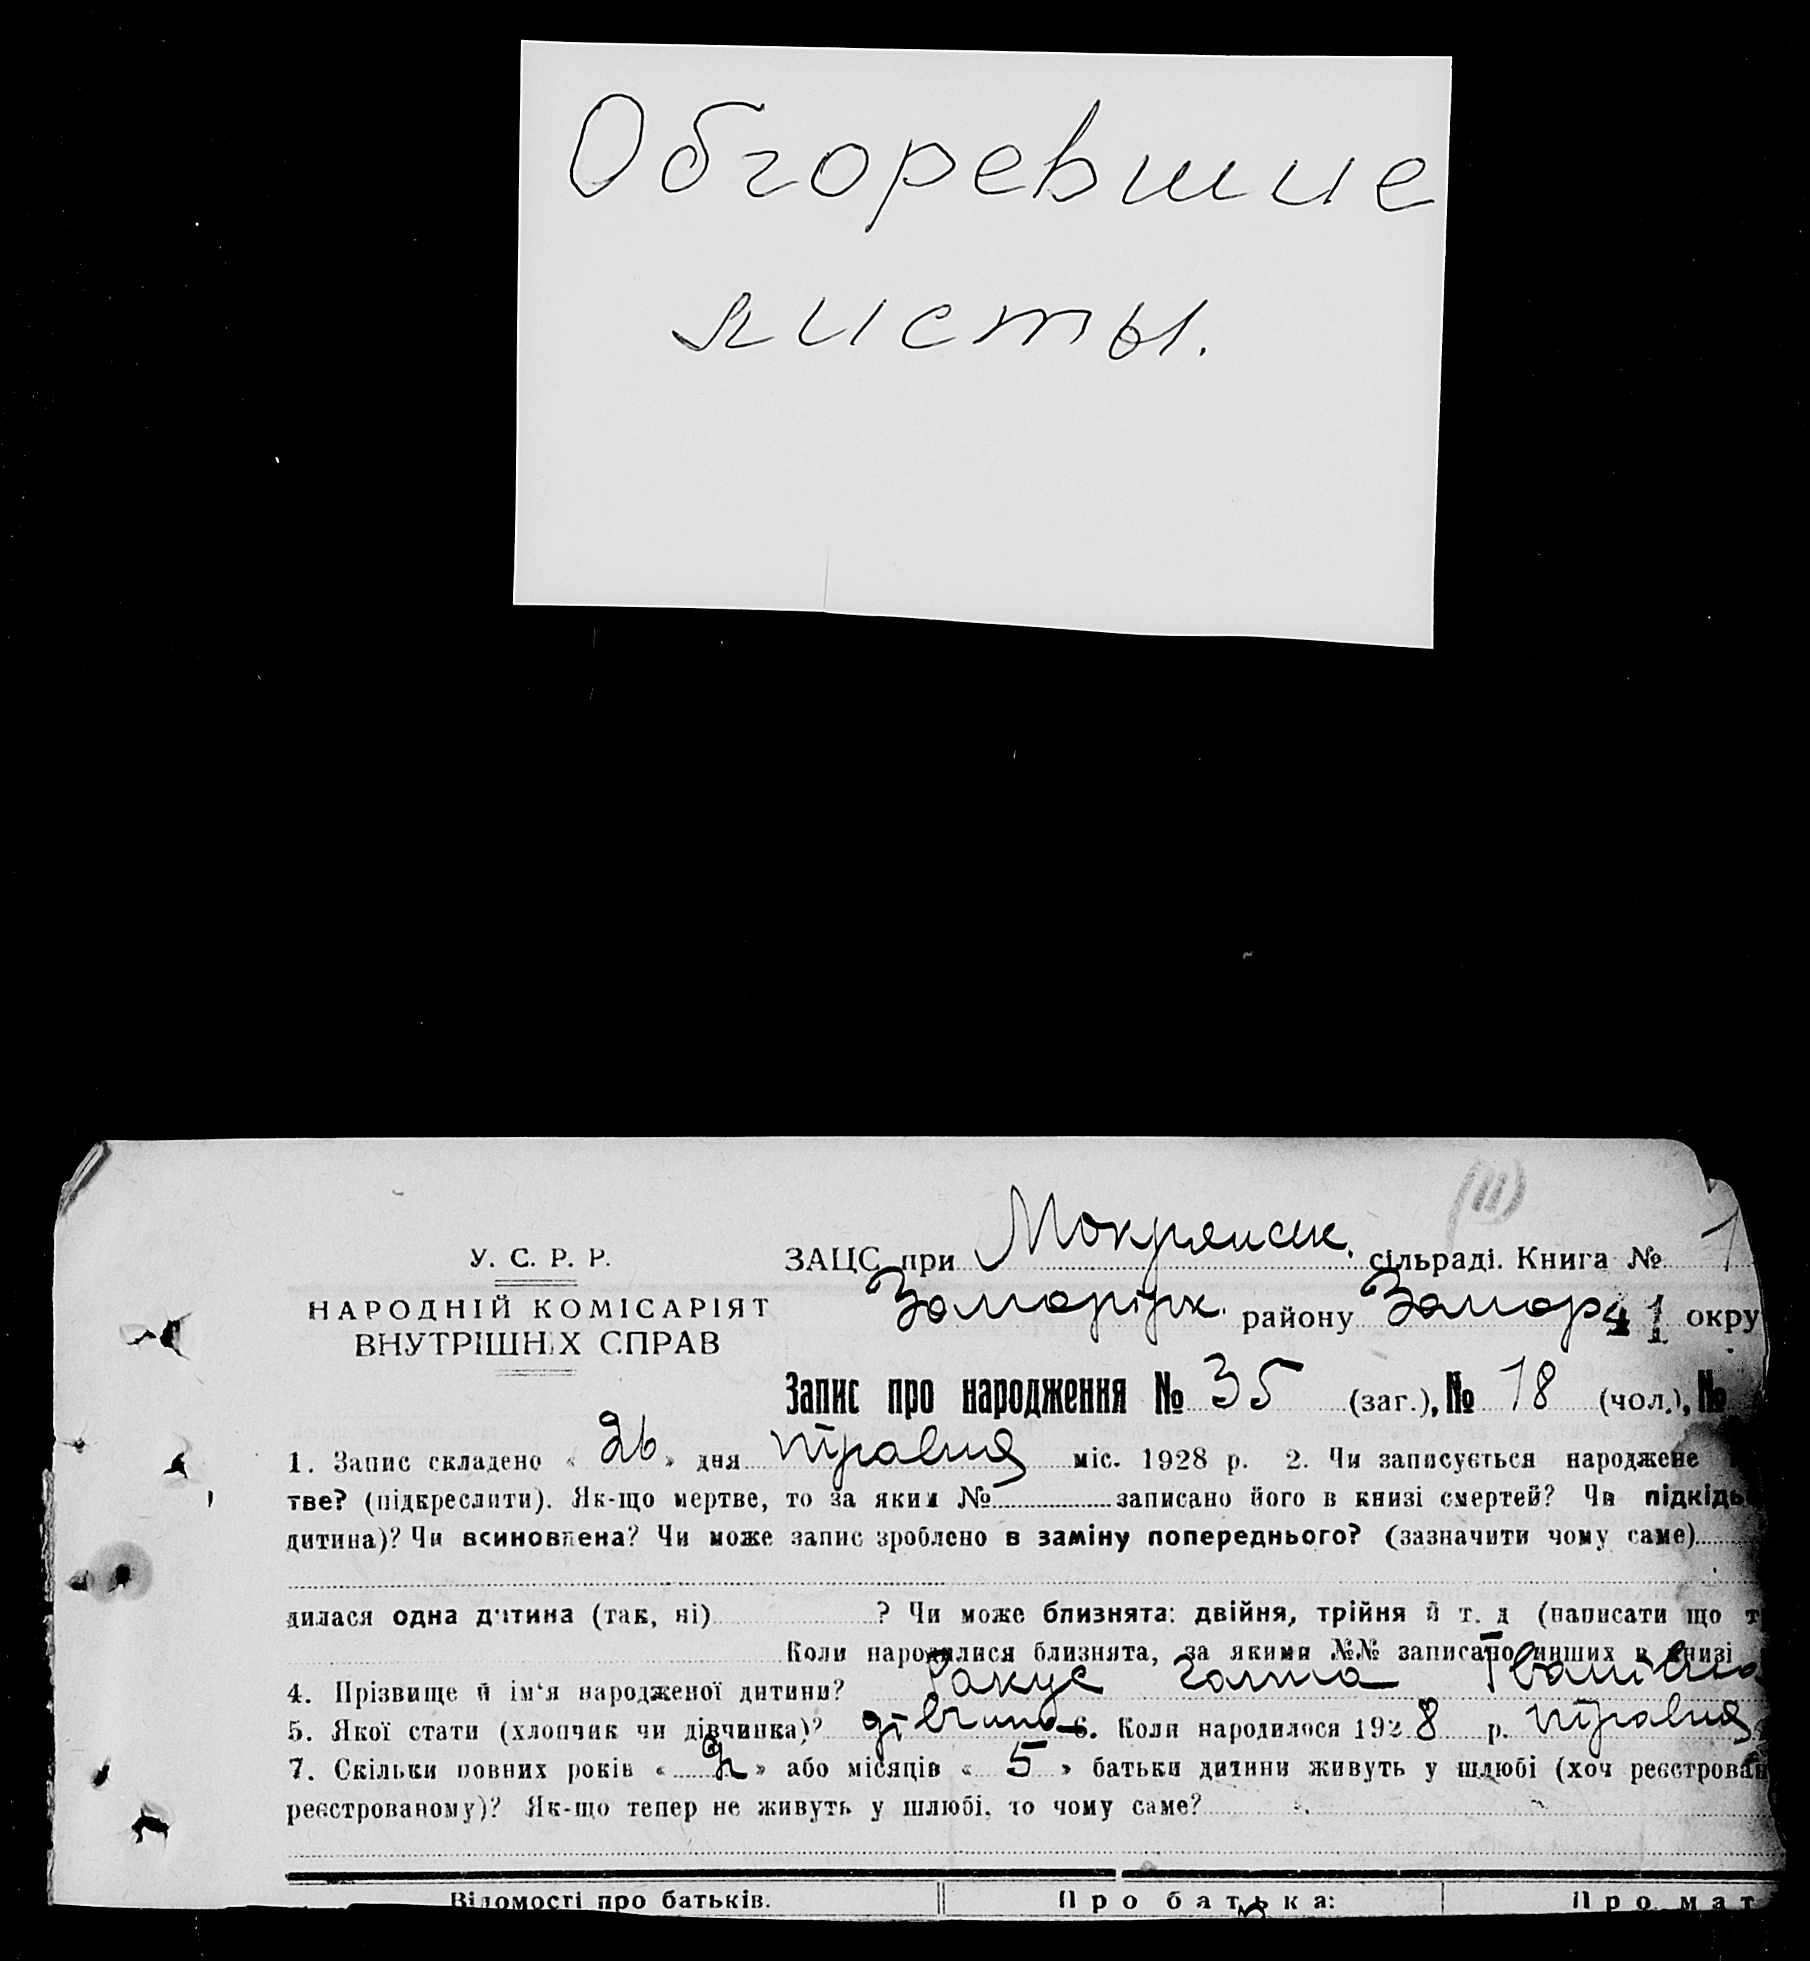 Обгоревшие
листы.
У. С. Р. Р.
НАРОДНІЙ КОМІСАРІЯТ
ВНУТРІШНІХ СПРАВ
ЗАЦС при Мокрянськ. сільраді. Книга № 1
Запоріжк. району Запор 41 окру
Запис про народження № 35 (заг.), № 18 (чол.), №
1. Запис складено « 26 » дня травня міс. 1928 р. 2. Чи записується народжене
тве? (підкреслити). Як-що мертве, то за яким № записано його в книзі смертей? Чи підкідь
дитина)? Чи всиновлена? Чи може запис зроблено в заміну попереднього? (зазначити чому саме)
дилася одна дитина (так, ні) ? Чи може близнята: двійня, трійня й т. д (написати що т
Коли народилися близнята, за якими №№ записано инших в книзі
4. Прізвище й ім'я народженої дитини? Ракус Галина Іванівна
5. Якої стати (хлопчик чи дівчинка)? дівчина 6. Коли народилося 1928 р. травня
7. Скільки повних років « 2 » або місяців « 5 » батьки дитини живуть у шлюбі (хоч реєстрован
реєстрованому)? Як-що тепер не живуть у шлюбі, то чому саме?
Відомості про батьків. Про батька: Про мат